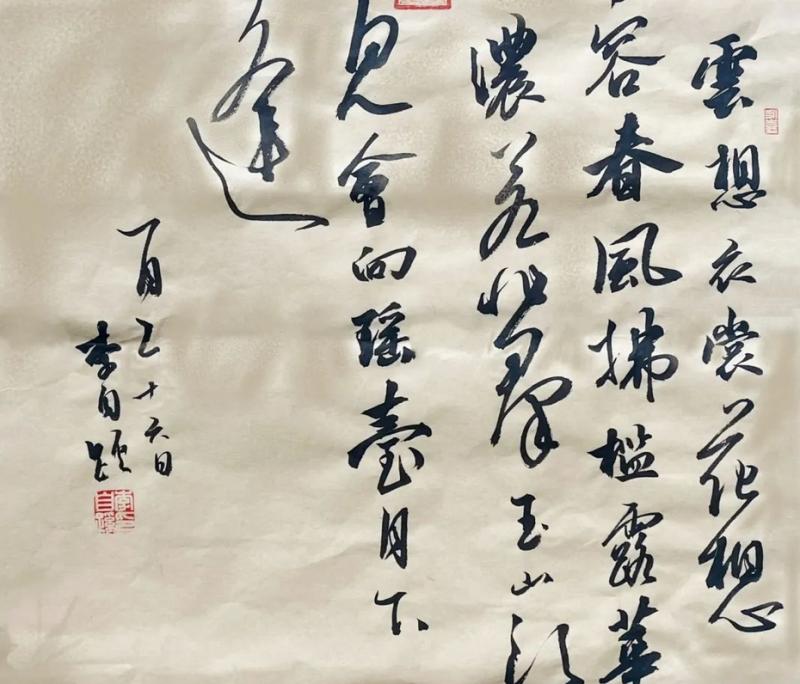 雲想衣裳花想
容春風拂檻露華
濃若非羣玉山頭
見會向瑶臺月下
逢
一月二十六日
李自蹊